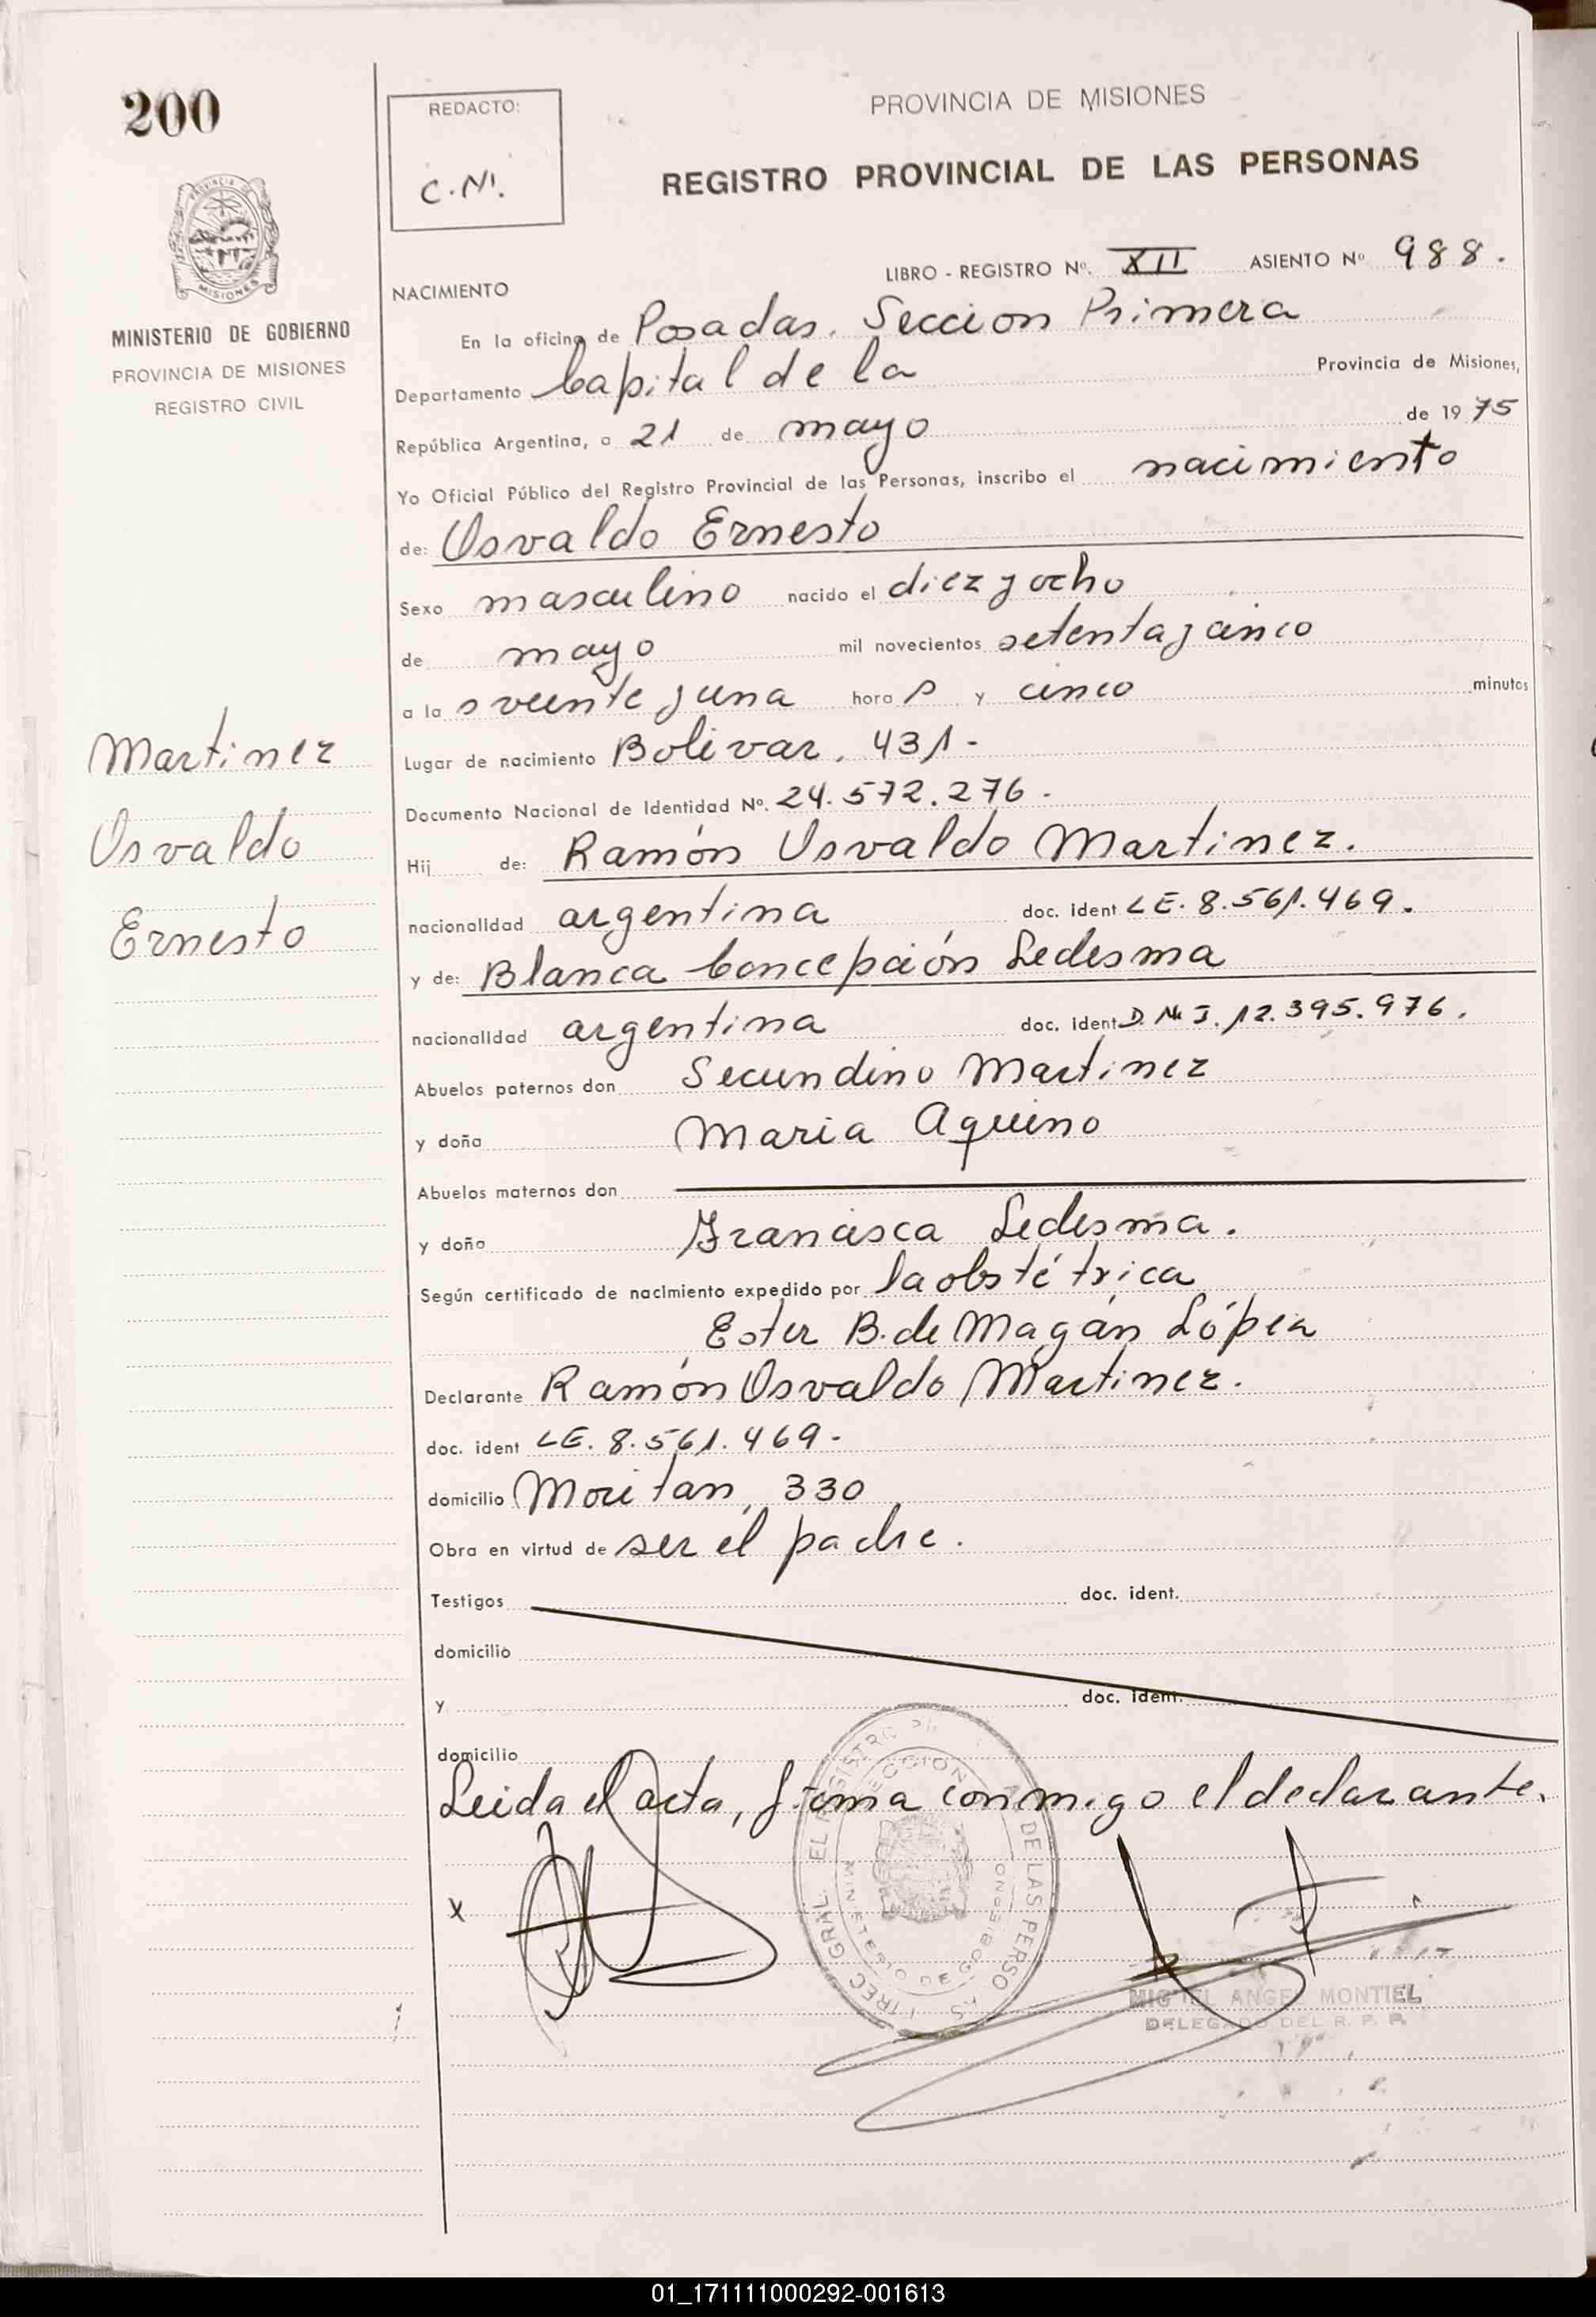 200
REDACTO:
C.N.
PROVINCIA DE MISIONES
REGISTRO PROVINCIAL DE LAS PERSONAS
MINISTERIO DE GOBIERNO
PROVINCIA DE MISIONES
REGISTRO CIVIL
LIBRO - REGISTRO Nº. XII ASIENTO Nº 988.
NACIMIENTO
En la oficina de Posadas. Seccion Primera
Departamento Capital de la Provincia de Misiones,
República Argentina, a 21 de mayo de 1975
Yo Oficial Público del Registro Provincial de las Personas, inscribo el nacimiento
de: Osvaldo Ernesto
Sexo masculino nacido el diez y ocho
de mayo mil novecientos setenta y cinco
a la s veinte y una hora s y cinco minutos
Lugar de nacimiento Bolivar, 431.-
Documento Nacional de Identidad Nº. 24.572.276.
Martinez
Osvaldo
Ernesto
Hij de: Ramón Osvaldo Martinez.
nacionalidad argentina doc. ident L.E. 8.561.469.
y de: Blanca Concepción Ledesma
nacionalidad argentina doc. ident D.N.I. 12.395.976.
Abuelos paternos don Secundino Martinez
y doña Maria Aquino
Abuelos maternos don
y doña Francisca Ledesma.
Según certificado de nacimiento expedido por la obstétrica
Ester B. de Magán López
Declarante Ramón Osvaldo Martinez.
doc. ident L.E. 8.561.469.-
domicilio Moritan, 330
Obra en virtud de ser el padre.
Testigos doc. ident.
domicilio
y doc. ident.
domicilio
Leida el acta, firma conmigo el declarante.
X
MINISTERIO DE GOBIERNO
MIGUEL ANGEL MONTIEL
DELEGADO DEL R. P. P.
01_171111000292-001613